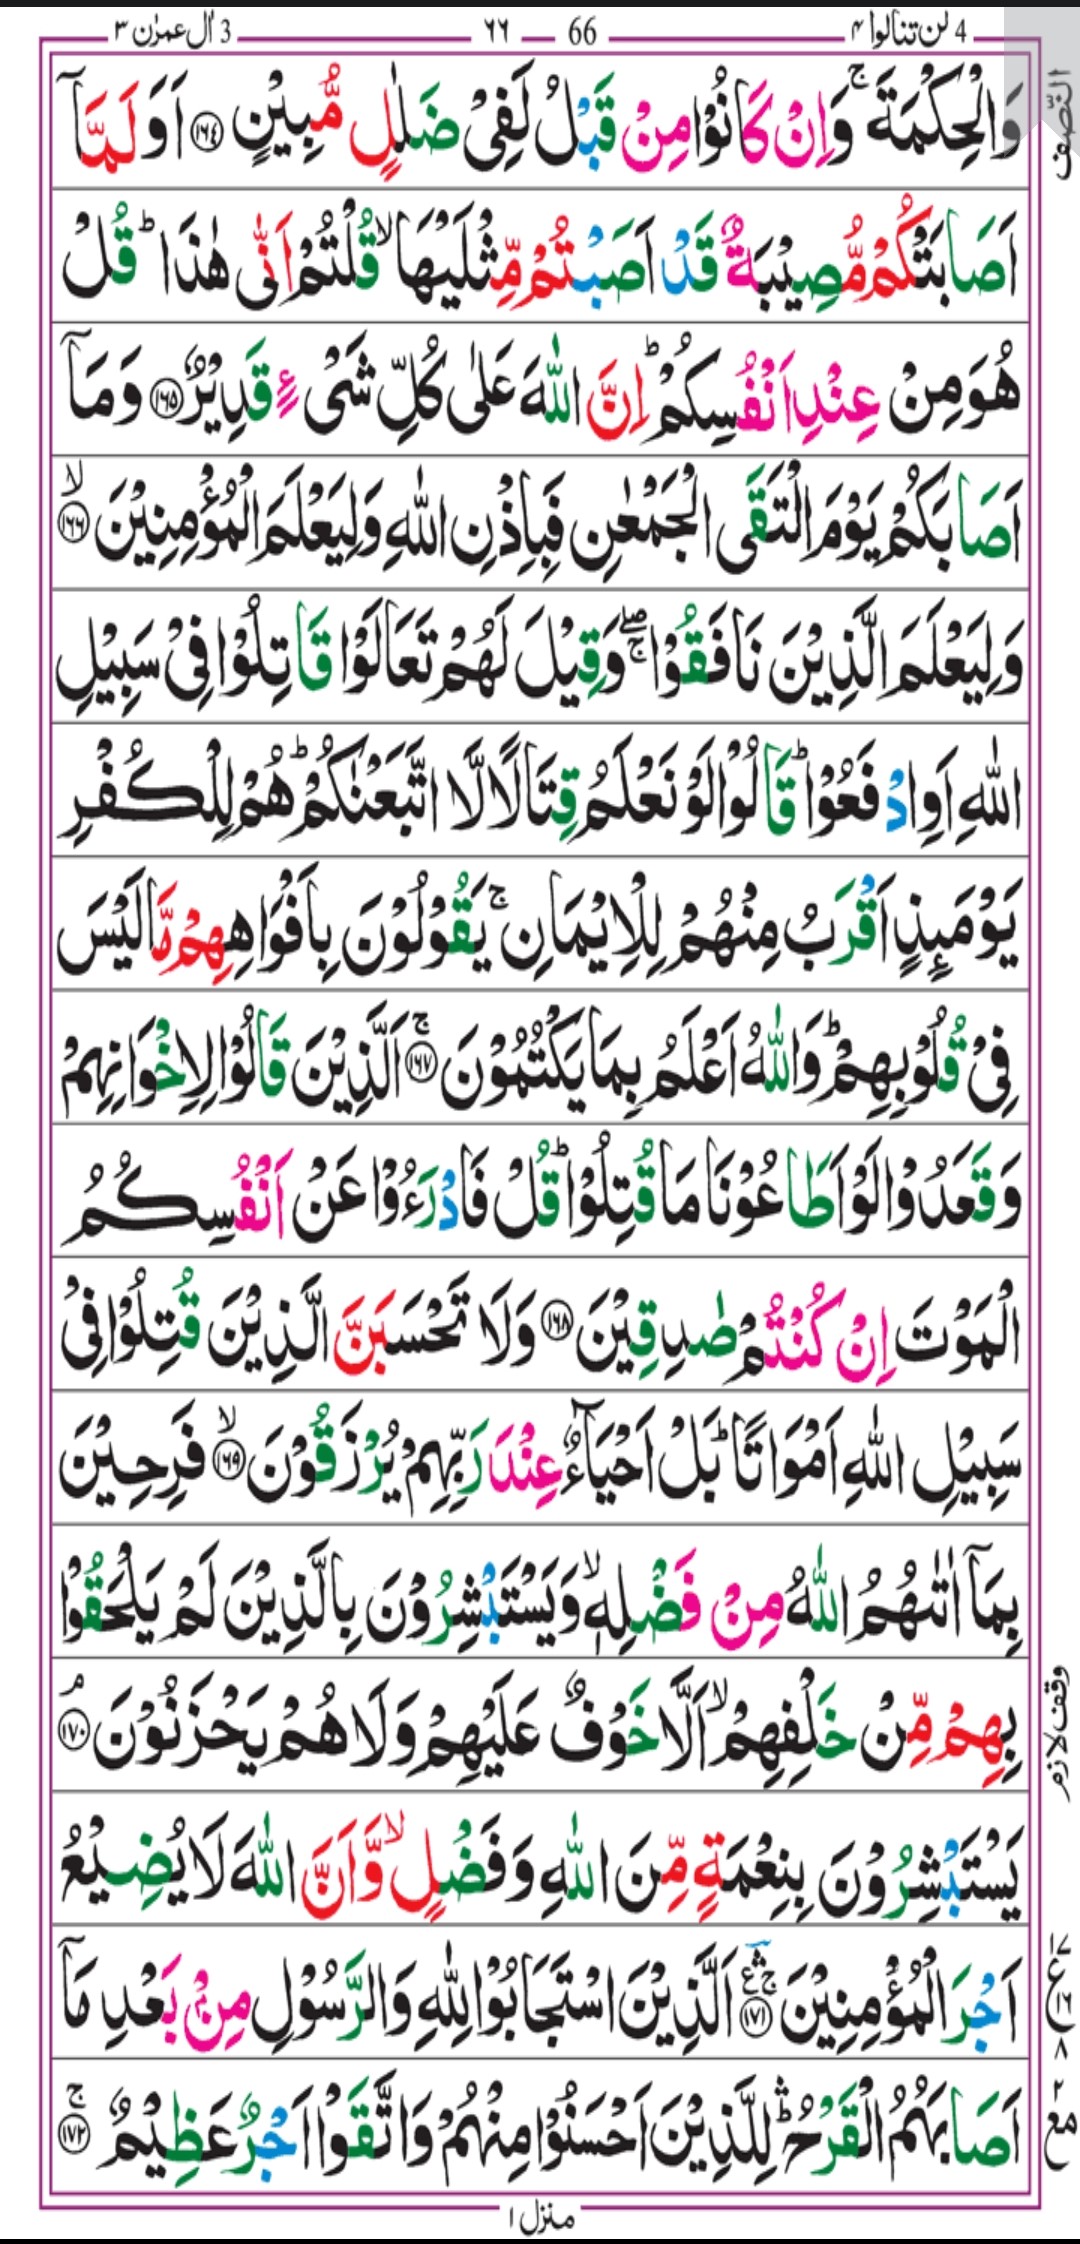 4 لن تنالوا ۴
66 — ٦٦
3 اٰل عمرٰن ۳
النّصف
وَالْحِكْمَةَ ۚ وَاِنْ كَانُوْا مِنْ قَبْلُ لَفِىْ ضَلٰلٍ مُّبِيْنٍ ‏﴿۱۶۴﴾‏ اَوَلَمَّاۤ
اَصَابَتْكُمْ مُّصِيْبَةٌ قَدْ اَصَبْتُمْ مِّثْلَيْهَا ۙ قُلْتُمْ اَنّٰى هٰذَا ؕ قُلْ
هُوَ مِنْ عِنْدِ اَنْفُسِكُمْ ؕ اِنَّ اللّٰهَ عَلٰى كُلِّ شَىْءٍ قَدِيْرٌ ‏﴿۱۶۵﴾‏ وَمَاۤ
اَصَابَكُمْ يَوْمَ الْتَقَى الْجَمْعٰنِ فَبِاِذْنِ اللّٰهِ وَلِيَعْلَمَ الْمُؤْمِنِيْنَ ۙ‏﴿۱۶۶﴾‏
وَلِيَعْلَمَ الَّذِيْنَ نَافَقُوْا ۖۚ وَقِيْلَ لَهُمْ تَعَالَوْا قَاتِلُوْا فِىْ سَبِيْلِ
اللّٰهِ اَوِ ادْفَعُوْا ؕ قَالُوْا لَوْ نَعْلَمُ قِتَالًا لَّا اتَّبَعْنٰكُمْ ؕ هُمْ لِلْكُفْرِ
يَوْمَىِٕذٍ اَقْرَبُ مِنْهُمْ لِلْاِيْمَانِ ۚ يَقُوْلُوْنَ بِاَفْوَاهِهِمْ مَّا لَيْسَ
فِىْ قُلُوْبِهِمْ ؕ وَاللّٰهُ اَعْلَمُ بِمَا يَكْتُمُوْنَ ۚ‏﴿۱۶۷﴾‏ اَلَّذِيْنَ قَالُوْا لِاِخْوَانِهِمْ
وَقَعَدُوْا لَوْ اَطَاعُوْنَا مَا قُتِلُوْا ؕ قُلْ فَادْرَءُوْا عَنْ اَنْفُسِكُمُ
الْمَوْتَ اِنْ كُنْتُمْ صٰدِقِيْنَ ‏﴿۱۶۸﴾‏ وَلَا تَحْسَبَنَّ الَّذِيْنَ قُتِلُوْا فِىْ
سَبِيْلِ اللّٰهِ اَمْوَاتًا ؕ بَلْ اَحْيَآءٌ عِنْدَ رَبِّهِمْ يُرْزَقُوْنَ ۙ‏﴿۱۶۹﴾‏ فَرِحِيْنَ
بِمَاۤ اٰتٰٮهُمُ اللّٰهُ مِنْ فَضْلِهٖ ۙ وَيَسْتَبْشِرُوْنَ بِالَّذِيْنَ لَمْ يَلْحَقُوْا
بِهِمْ مِّنْ خَلْفِهِمْ ۙ اَلَّا خَوْفٌ عَلَيْهِمْ وَلَا هُمْ يَحْزَنُوْنَ ۘ‏﴿۱۷۰﴾‏
وقف لازم
يَسْتَبْشِرُوْنَ بِنِعْمَةٍ مِّنَ اللّٰهِ وَفَضْلٍ ۙ وَّاَنَّ اللّٰهَ لَا يُضِيْعُ
اَجْرَ الْمُؤْمِنِيْنَ ۛۚ ع ‏﴿۱۷۱﴾‏ اَلَّذِيْنَ اسْتَجَابُوْا لِلّٰهِ وَالرَّسُوْلِ مِنْۢ بَعْدِ مَاۤ
۱۷ ع ۱۶ ۸
اَصَابَهُمُ الْقَرْحُ ۛؕ لِلَّذِيْنَ اَحْسَنُوْا مِنْهُمْ وَاتَّقَوْا اَجْرٌ عَظِيْمٌ ۚ‏﴿۱۷۲﴾‏
۲ مع
منزل ۱